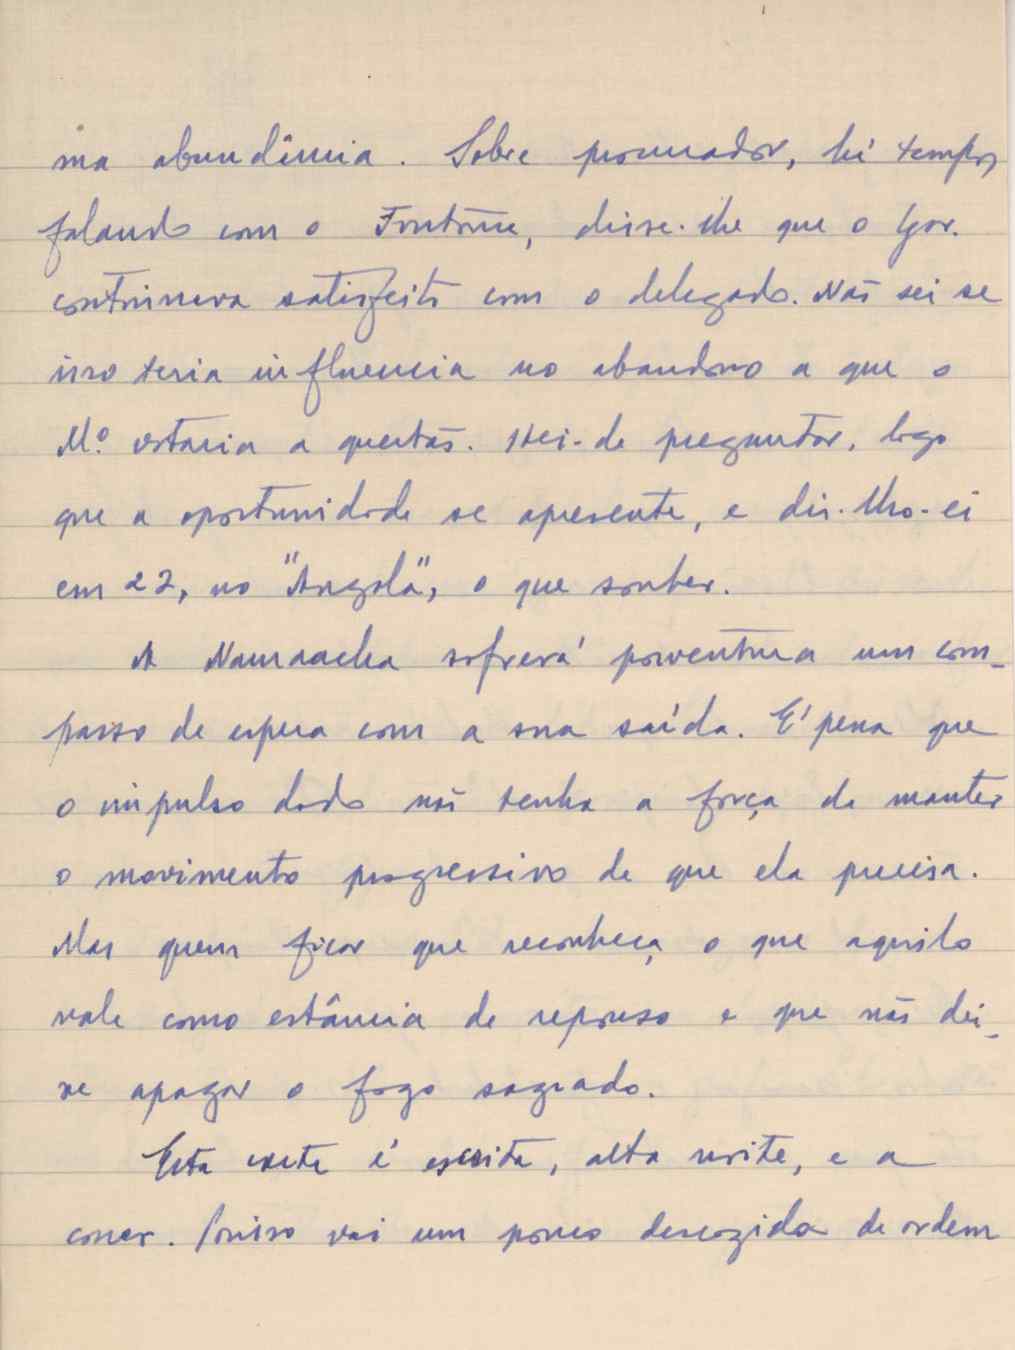 ma abundância. Sobre procurador, há tempos,
falando com o Fontoura, disse-lhe que o Gov.
continuava satisfeito com o delegado. Não sei se
isso teria influencia no abandono a que o
M.º votaria a questão. Hei-de preguntar, logo
que a oportunidade se apresente, e dir-lho-ei
em 22, no "Angola", o que souber.
A Namaacha sofrerá porventura um com-
passo de espera com a sua saída. É pena que
o impulso dado não tenha a força de manter
o movimento progressivo de que ela precisa.
Mas quem ficar que reconheça o que aquilo
vale como estância de repouso e que não dei-
xe apagar o fogo sagrado.
Esta carta é escrita, alta noite, e a
correr. Por isso vai um pouco descozida de ordem